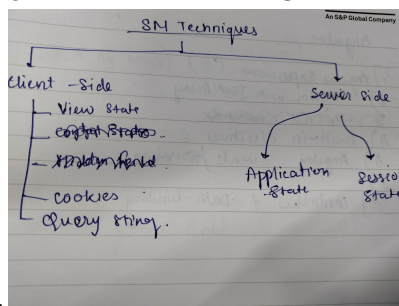 An S&P Global Company
SM Techniques
Client - Side
Server Side
View State
Control State.
Hidden Field
Cookies
Query sting.
Application State
Sessio State